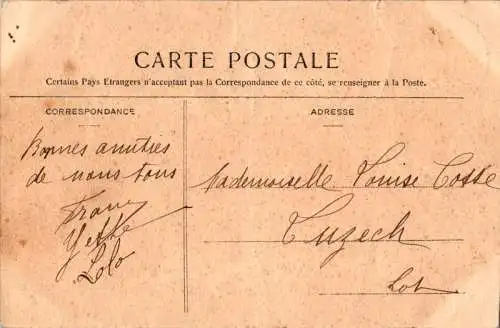 CARTE POSTALE
Certains Pays Etrangers n'acceptant pas la Correspondance de ce côté, se renseigner à la Poste.
CORRESPONDANCE
Bonnes amitiés
de nous tous
Lolo
ADRESSE
Mademoiselle Louise Coste
Luzech
Lot